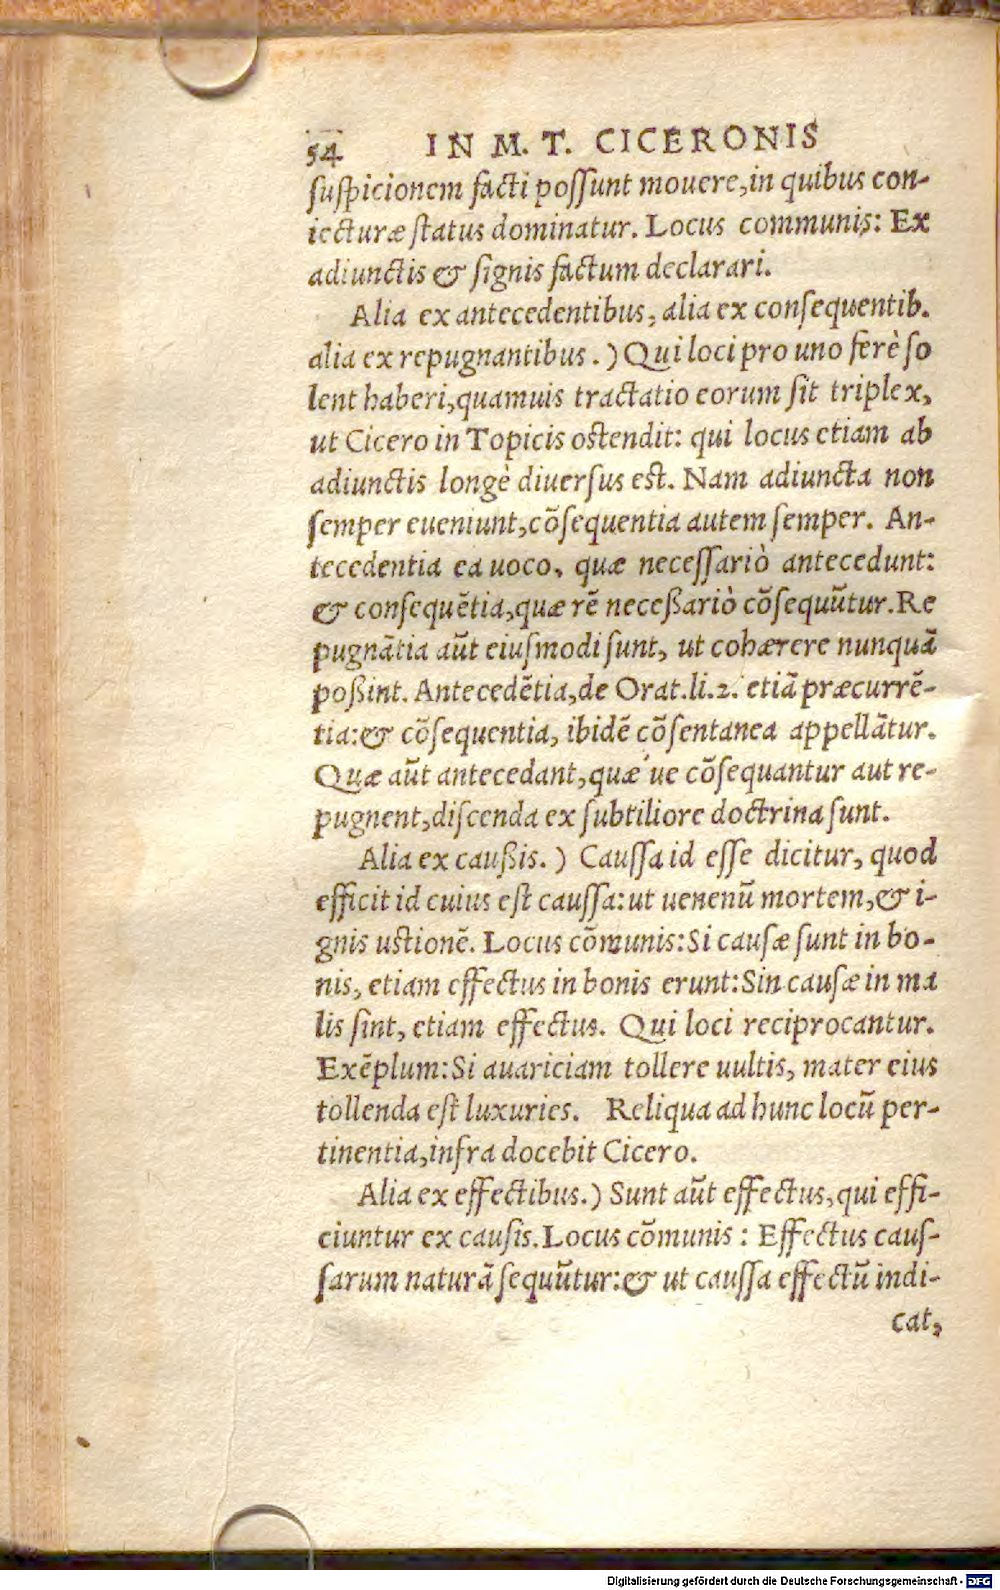 54 IN M. T. CICERONIS
ſuſpicionem facti poſſunt mouere,in quibus con-
iecturæ ſtatus dominatur. Locus communis: Ex
adiunctis & ſignis factum declarari.
Alia ex antecedentibus, alia ex conſequentib.
alia ex repugnantibus.) Qui loci pro uno ferè ſo
lent haberi,quamuis tractatio eorum ſit triplex,
ut Cicero in Topicis oſtendit: qui locus etiam ab
adiunctis longè diuerſus eſt. Nam adiuncta non
ſemper eueniunt,cõſequentia autem ſemper. An-
tecedentia ea uoco, quæ neceſſariò antecedunt:
& conſequẽtia,quæ rẽ neceßariò cõſequũtur.Re
pugnãtia aũt eiuſmodi ſunt, ut cohærere nunquã
poßint. Antecedẽtia,de Orat.li.2. etiã præcurrẽ-
tia:& cõſequentia, ibidẽ cõſentanea appellãtur.
Quæ aũt antecedant,quæ'ue cõſequantur aut re-
pugnent,diſcenda ex ſubtiliore doctrina ſunt.
Alia ex caußis.) Cauſſa id eſſe dicitur, quod
efficit id cuius eſt cauſſa:ut uenenũ mortem,& i-
gnis uſtionẽ. Locus cõmunis:Si cauſæ ſunt in bo-
nis, etiam effectus in bonis erunt:Sin cauſæ in ma
lis ſint, etiam effectus. Qui loci reciprocantur.
Exẽplum:Si auariciam tollere uultis, mater eius
tollenda eſt luxuries. Reliqua ad hunc locũ per-
tinentia,infra docebit Cicero.
Alia ex effectibus.) Sunt aũt effectus,qui effi-
ciuntur ex cauſis.Locus cõmunis : Effectus cauſ-
ſarum naturã ſequũtur:& ut cauſſa effectũ indi-
cat,
Digitalisierung gefördert durch die Deutsche Forschungsgemeinschaft - DFG